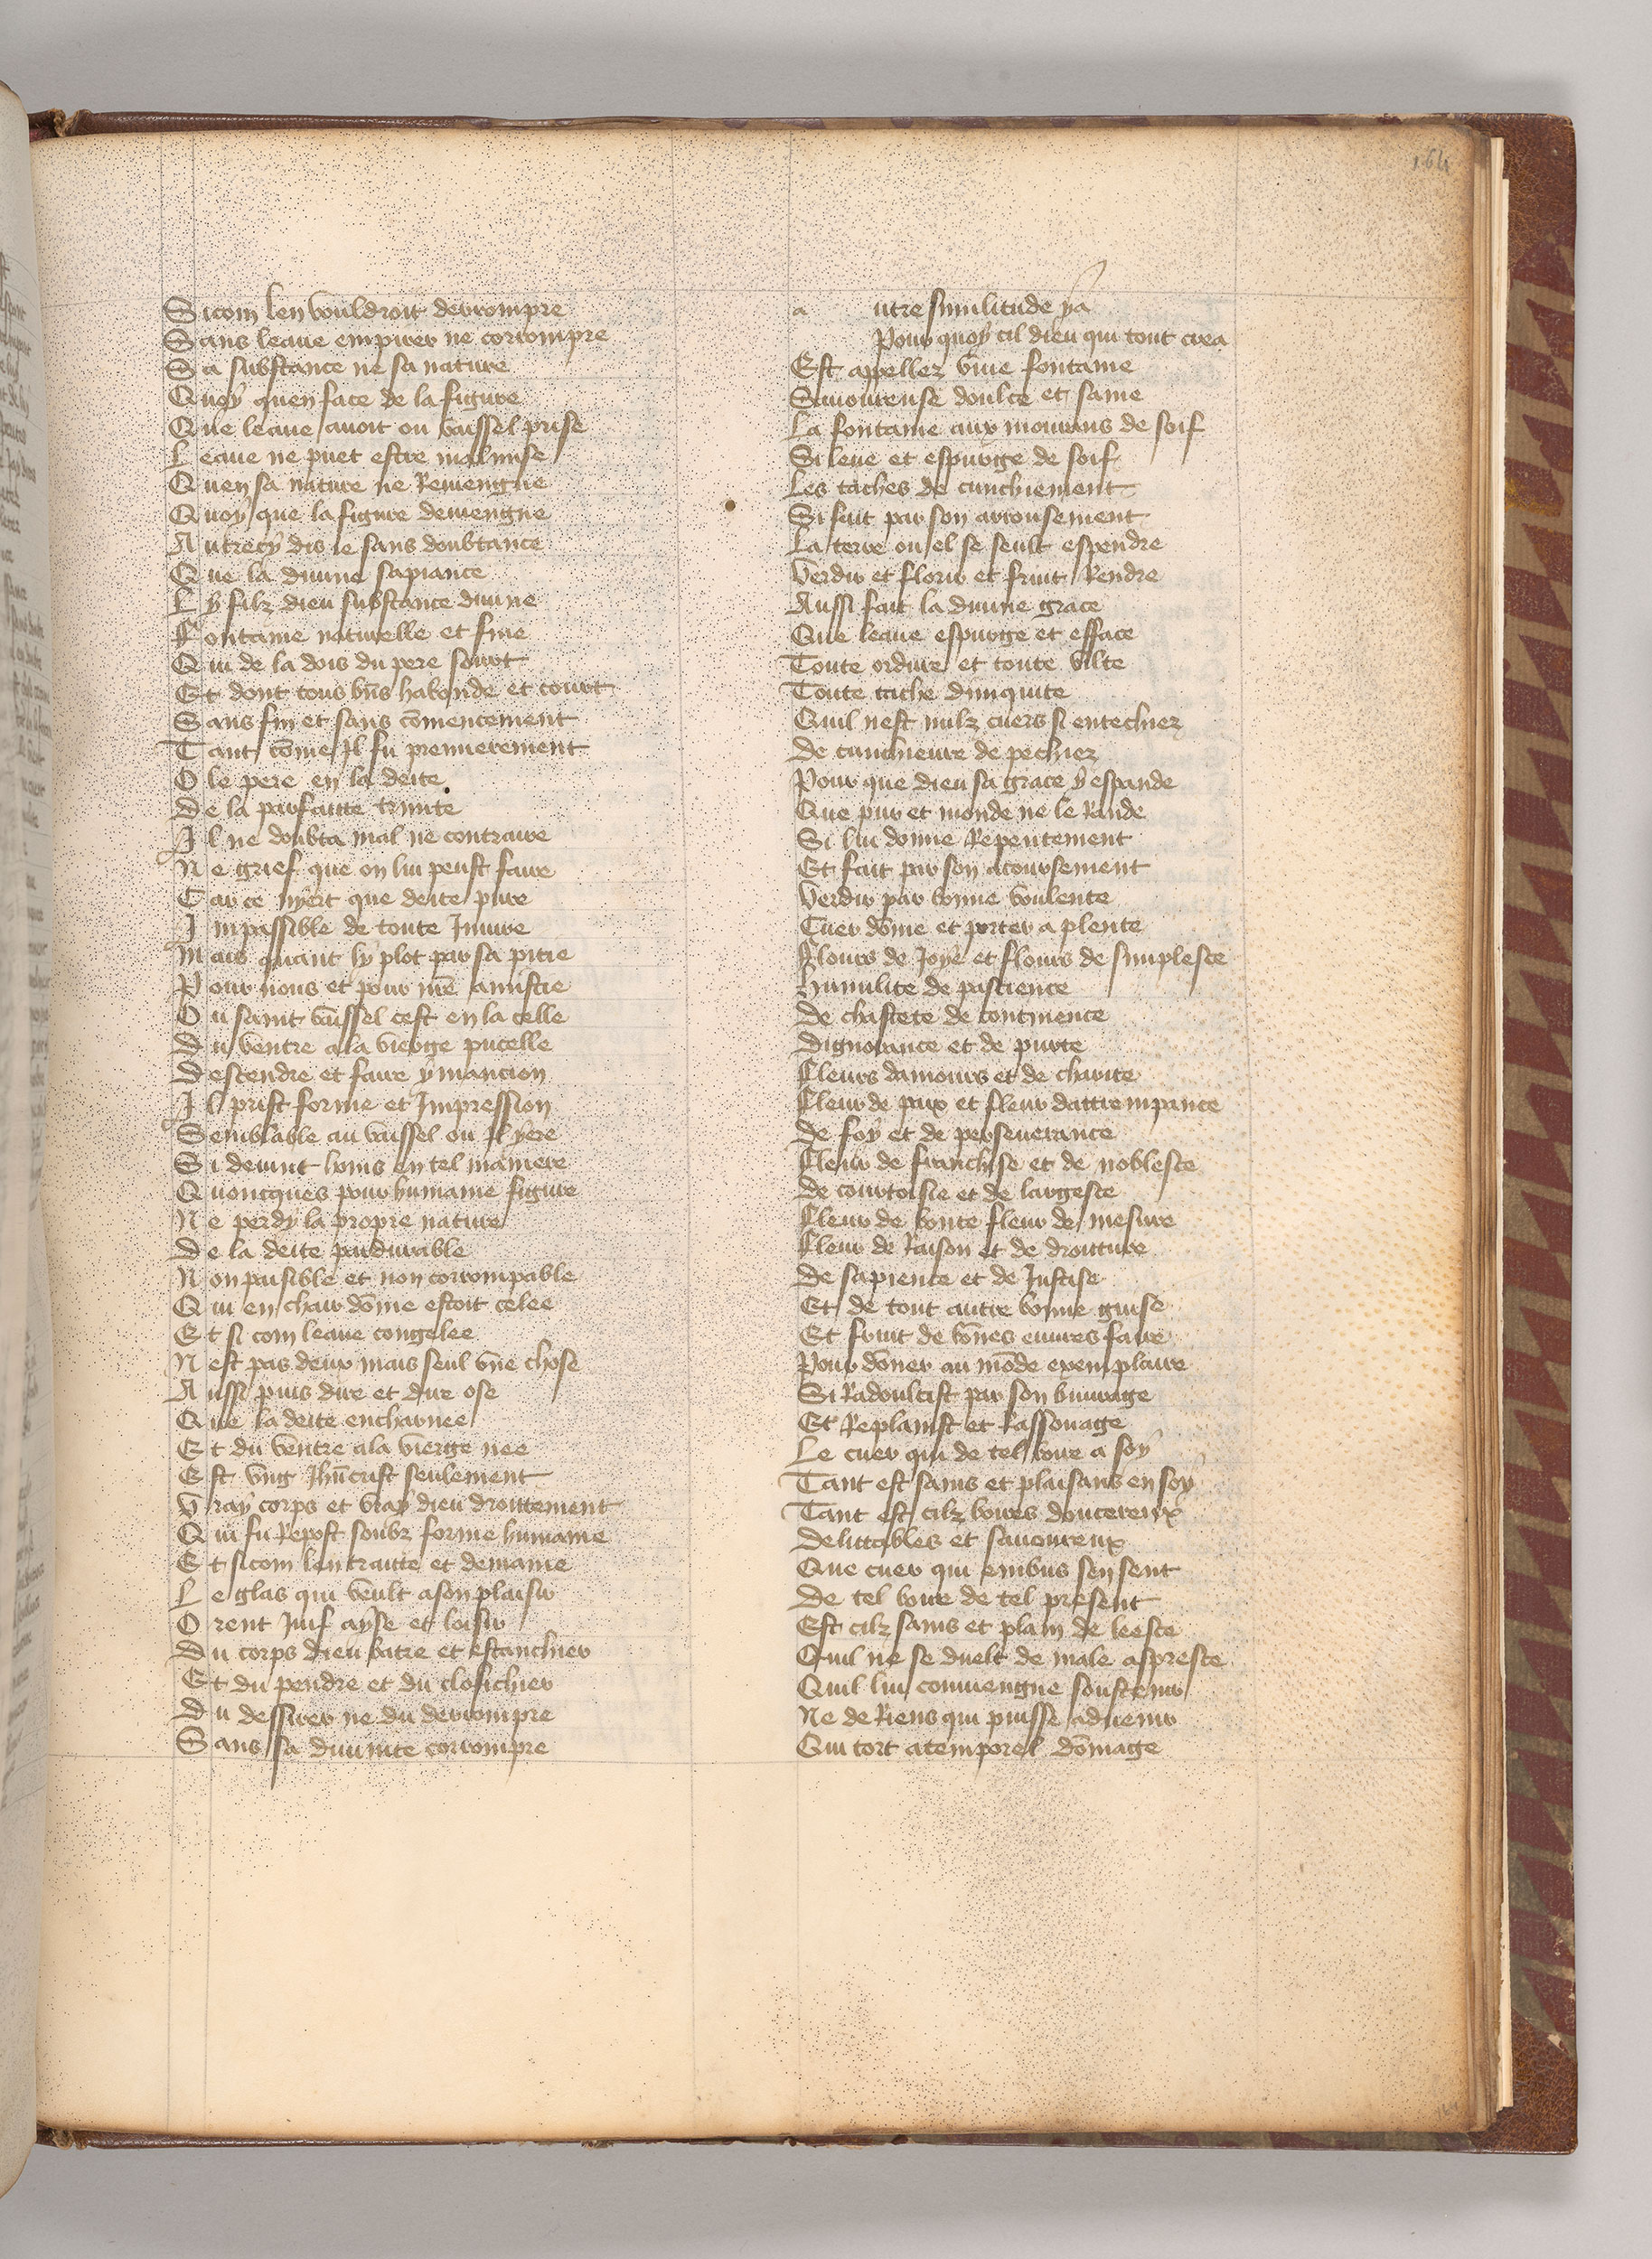 164
Sicom len vouldroit derrompre
Sans leaue empirer ne corrompre
Sa substance ne sa nature
Quoy quen face de la figure
Que leaue auoit ou vaissel prise
Leaue ne puet estre malmise
Quen sa nature ne Reuiengne
Quoy que la figure deuiengne
Autrecy dis ie sans doubtance
Que la diuine sapiance
Ly filz dieu substance diuine
Fontaine naturelle et fine
Qui de la dois du pere sourt
Et dont tous bn̄s habonde et court
Sans fin et sans cōmencement
Tant cōme Il fu premierement
O le pere en la deite
De la parfaitte trinite
Il ne doubta mal ne contraire
Ne grief que on lui peust faire
Car ce nyert que deite pure
Impassible de toute Iniure
Mais quant ly plot par sa pitie
Pour nous et pour nr̄e amistie
Ou saint vaissel cest en la celle
Du ventre ala vierge pucelle
Descendre et faire y mancion
Il prist forme et Impression
Semblable au vaissel ou Il yere
Si deuint homs en tel maniere
Quoncques pour humaine figure
Ne perdy la propre nature
De la deite pardurable
Non paisible et non corrompable
Qui en chair dōme estoit celee
Et si com leaue congelee
Nest pas deux mais seul vne chose
Aussi puis dire et dire ose
Que la deite encharnee
Et du ventre ala vierge nee
Est vng Ihūcrist seulement
Vray corps et vray dieu droittement
Qui fu Repost soubz forme humaine
Et sicom len traitte et demaine
Le glas qui veult ason plaisir
Orent Iuif ayse et loisir
Du corps dieu batre et estanchier
Et du pendre et du clofichier
Du dessirer ne du derrompre
Sans sa diuinite corrompre
a utre similitude ya
Pour quoy cil dieu qui tout crea
Est appellez viue fontaine
Sauoureuse doulce et saine
La fontaine aux mourans de soif
Si leue et espurge de soif
Les taches de cunchiement
Si fait par son arrousement
La terre ou el se seult espendre
Verdir et florir et fruit Rendre
Aussi fait la diuine grace
Que leaue espurge et efface
Toute ordure et toute vilte
Toute tache diniquite
Quil nest nulz cuers si entechiez
De cunchieure de pechiez
Pour que dieu sa grace y espande
Que pur et monde ne le Rande
Si lui donne Repentement
Et fait par son acoursement
Verdir par bonne voulente
Cuer dōme et porter a plente
Flours de Ioye et flours de simplesce
Humilite de pascience
De chastete de continence
Dignorance et de purte
Fleurs damours et de charite
Fleur de paix et fleur dattrempance
De foy et de perseuerance
Fleur de franchise et de noblesce
De courtoisie et de largesce
Fleur de bonte fleur de mesure
Fleur de Raison et de droitture
De sapience et de Iustise
Et de tout autre bonne guise
Et fruit de bōnes euures faire
Pour dōner au mōde exemplaire
Si Radoulcist par son buurage
Et Replanist et Rassouage
Le cuer qui de tel boire a soy
Tant est sains et plaisans en soy
Tant est cilz boires doucereux
Delittables et sauoureux
Que cuer qui embus sen sent
De tel boire de tel present
Est cilz sains et plain de leesce
Quil ne se duelt de male aspresce
Quil lui conuiengne soustenir
Ne de Riens qui puisse aduenir
Qui tort atemporel dōmage